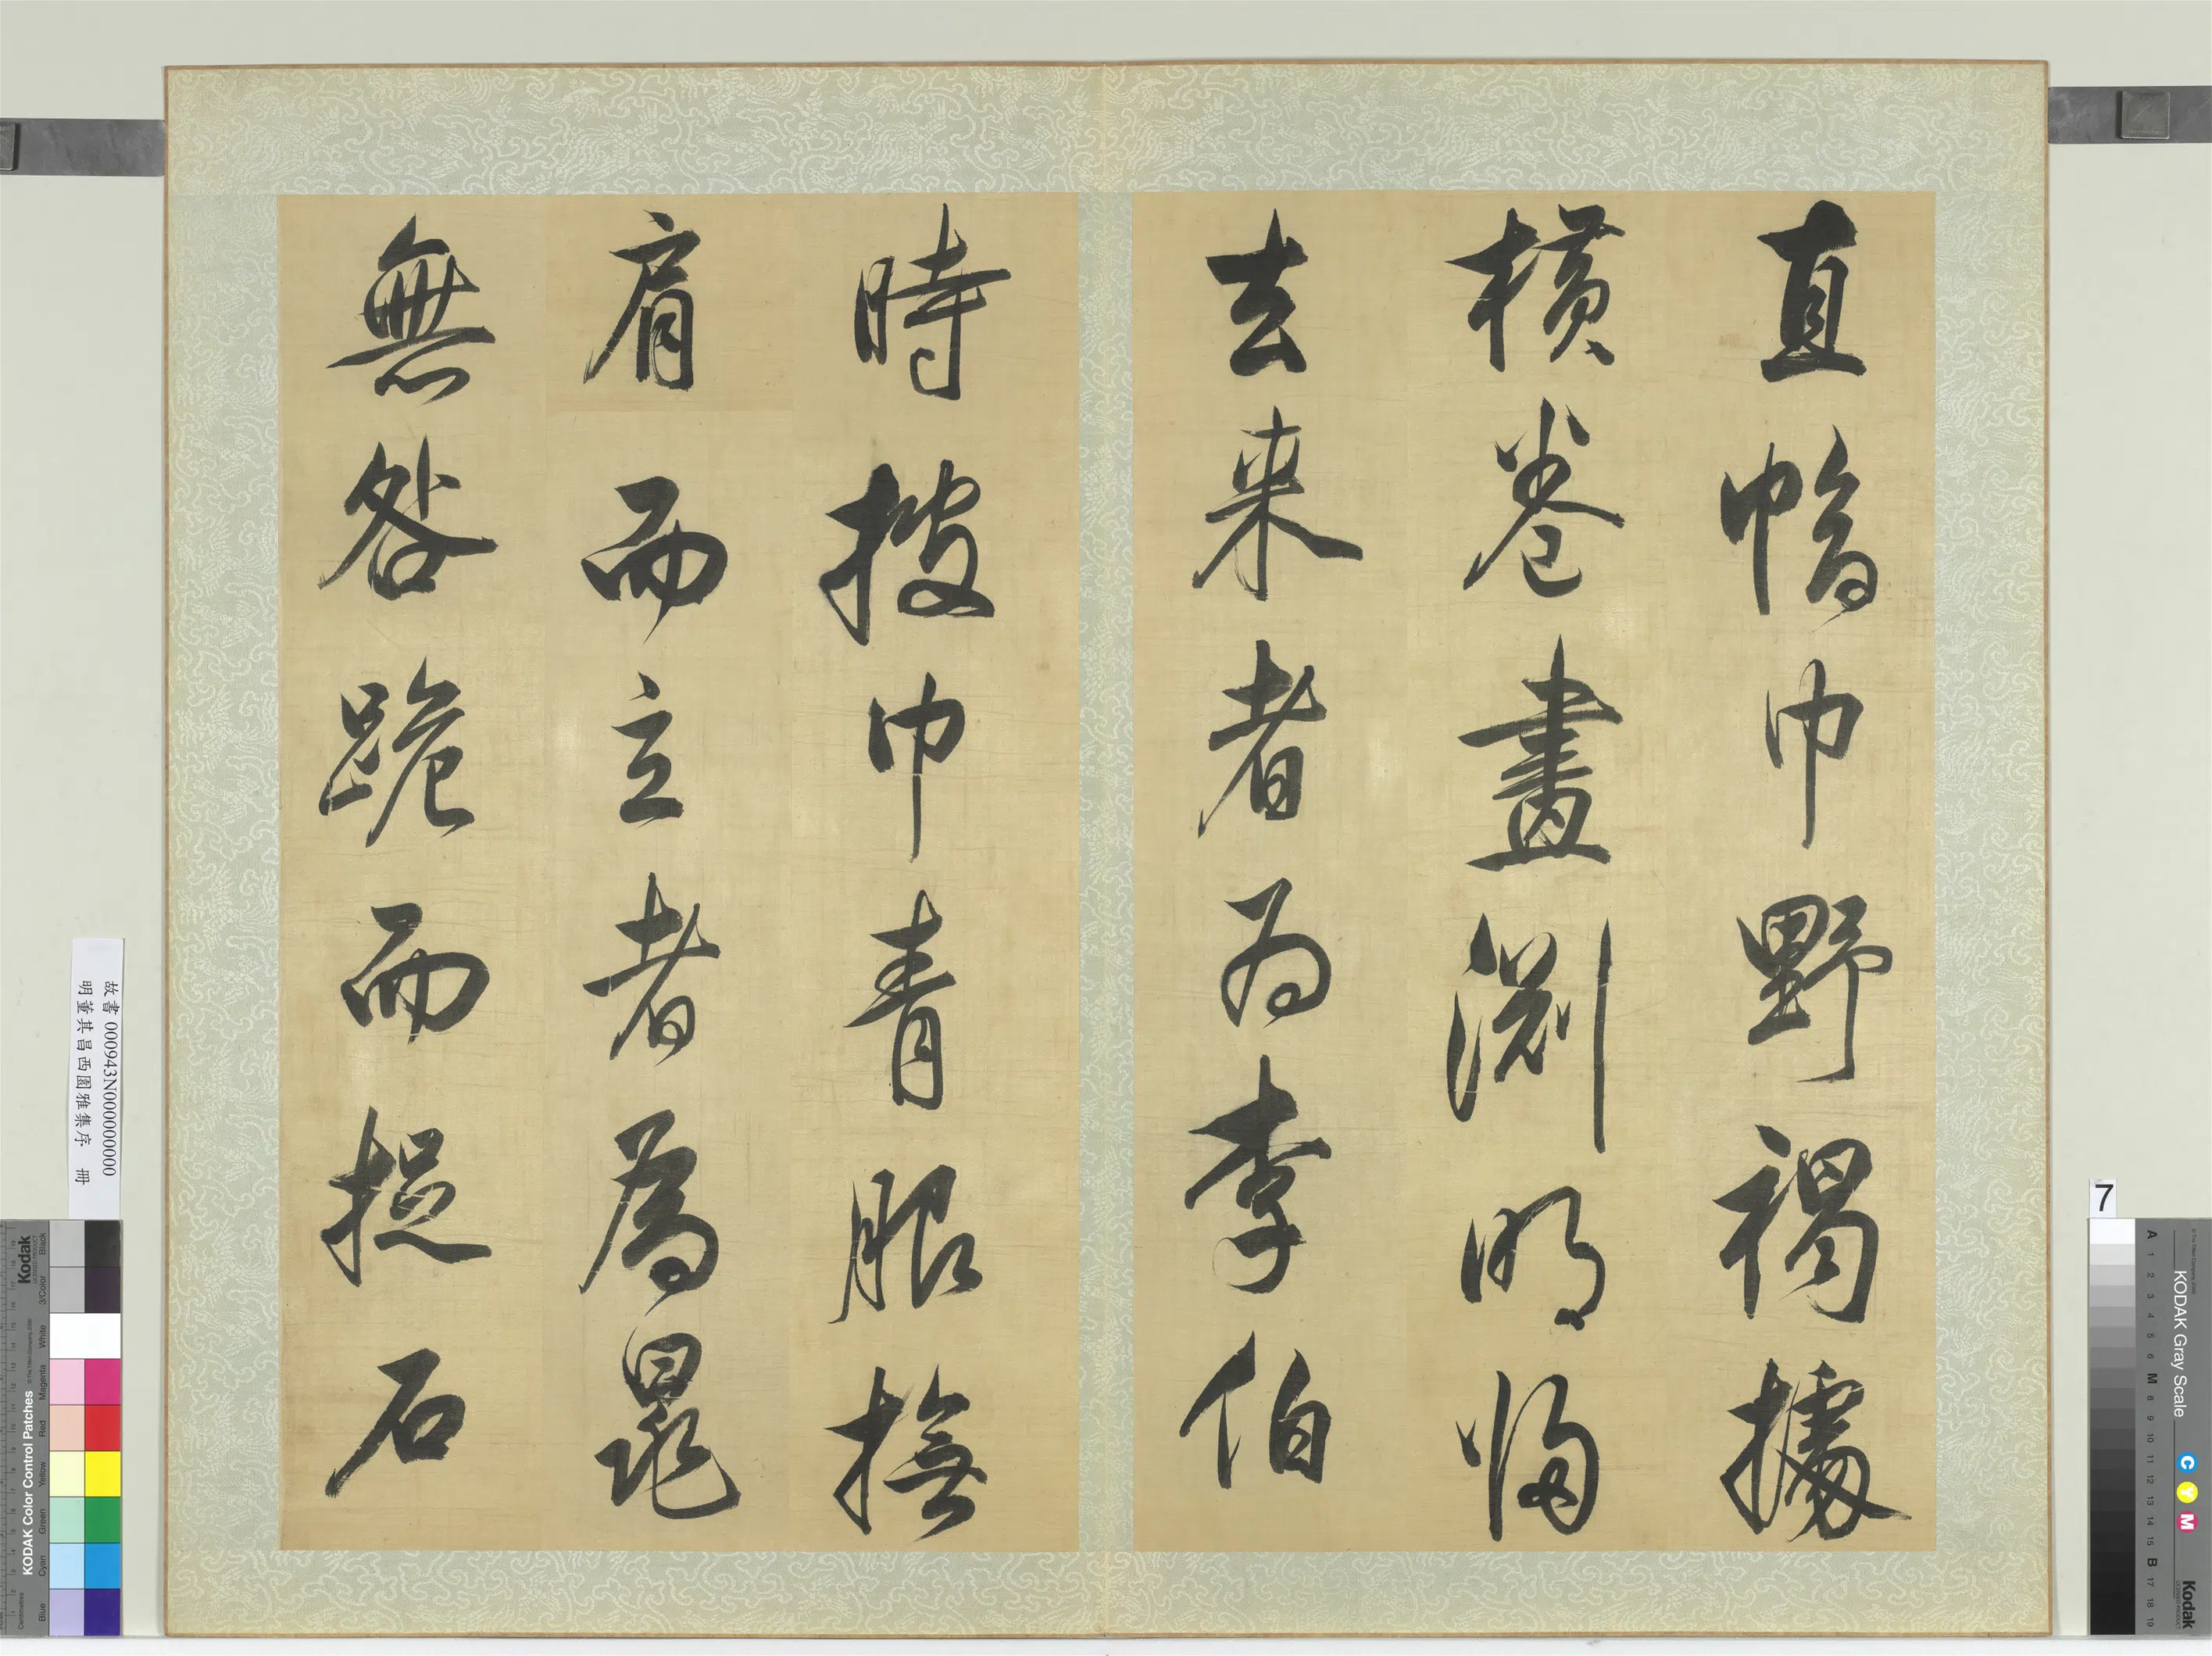 直幍巾野褐據
橫卷畫淵明歸
去来者為李伯
時披巾青服撫
肩而立者為晁
無咎跪而捉石
故書 000943N000000000
明董其昌西園雅集序 冊
7
KODAK Color Control Patches
Kodak
Blue
Cyan
Green
Yellow
Red
Magenta
White
3/Color
Black
KODAK Gray Scale
C Y M
Kodak
A 1 2 3 4 5 6 M 8 9 10 11 12 13 14 15 B 17 18 19